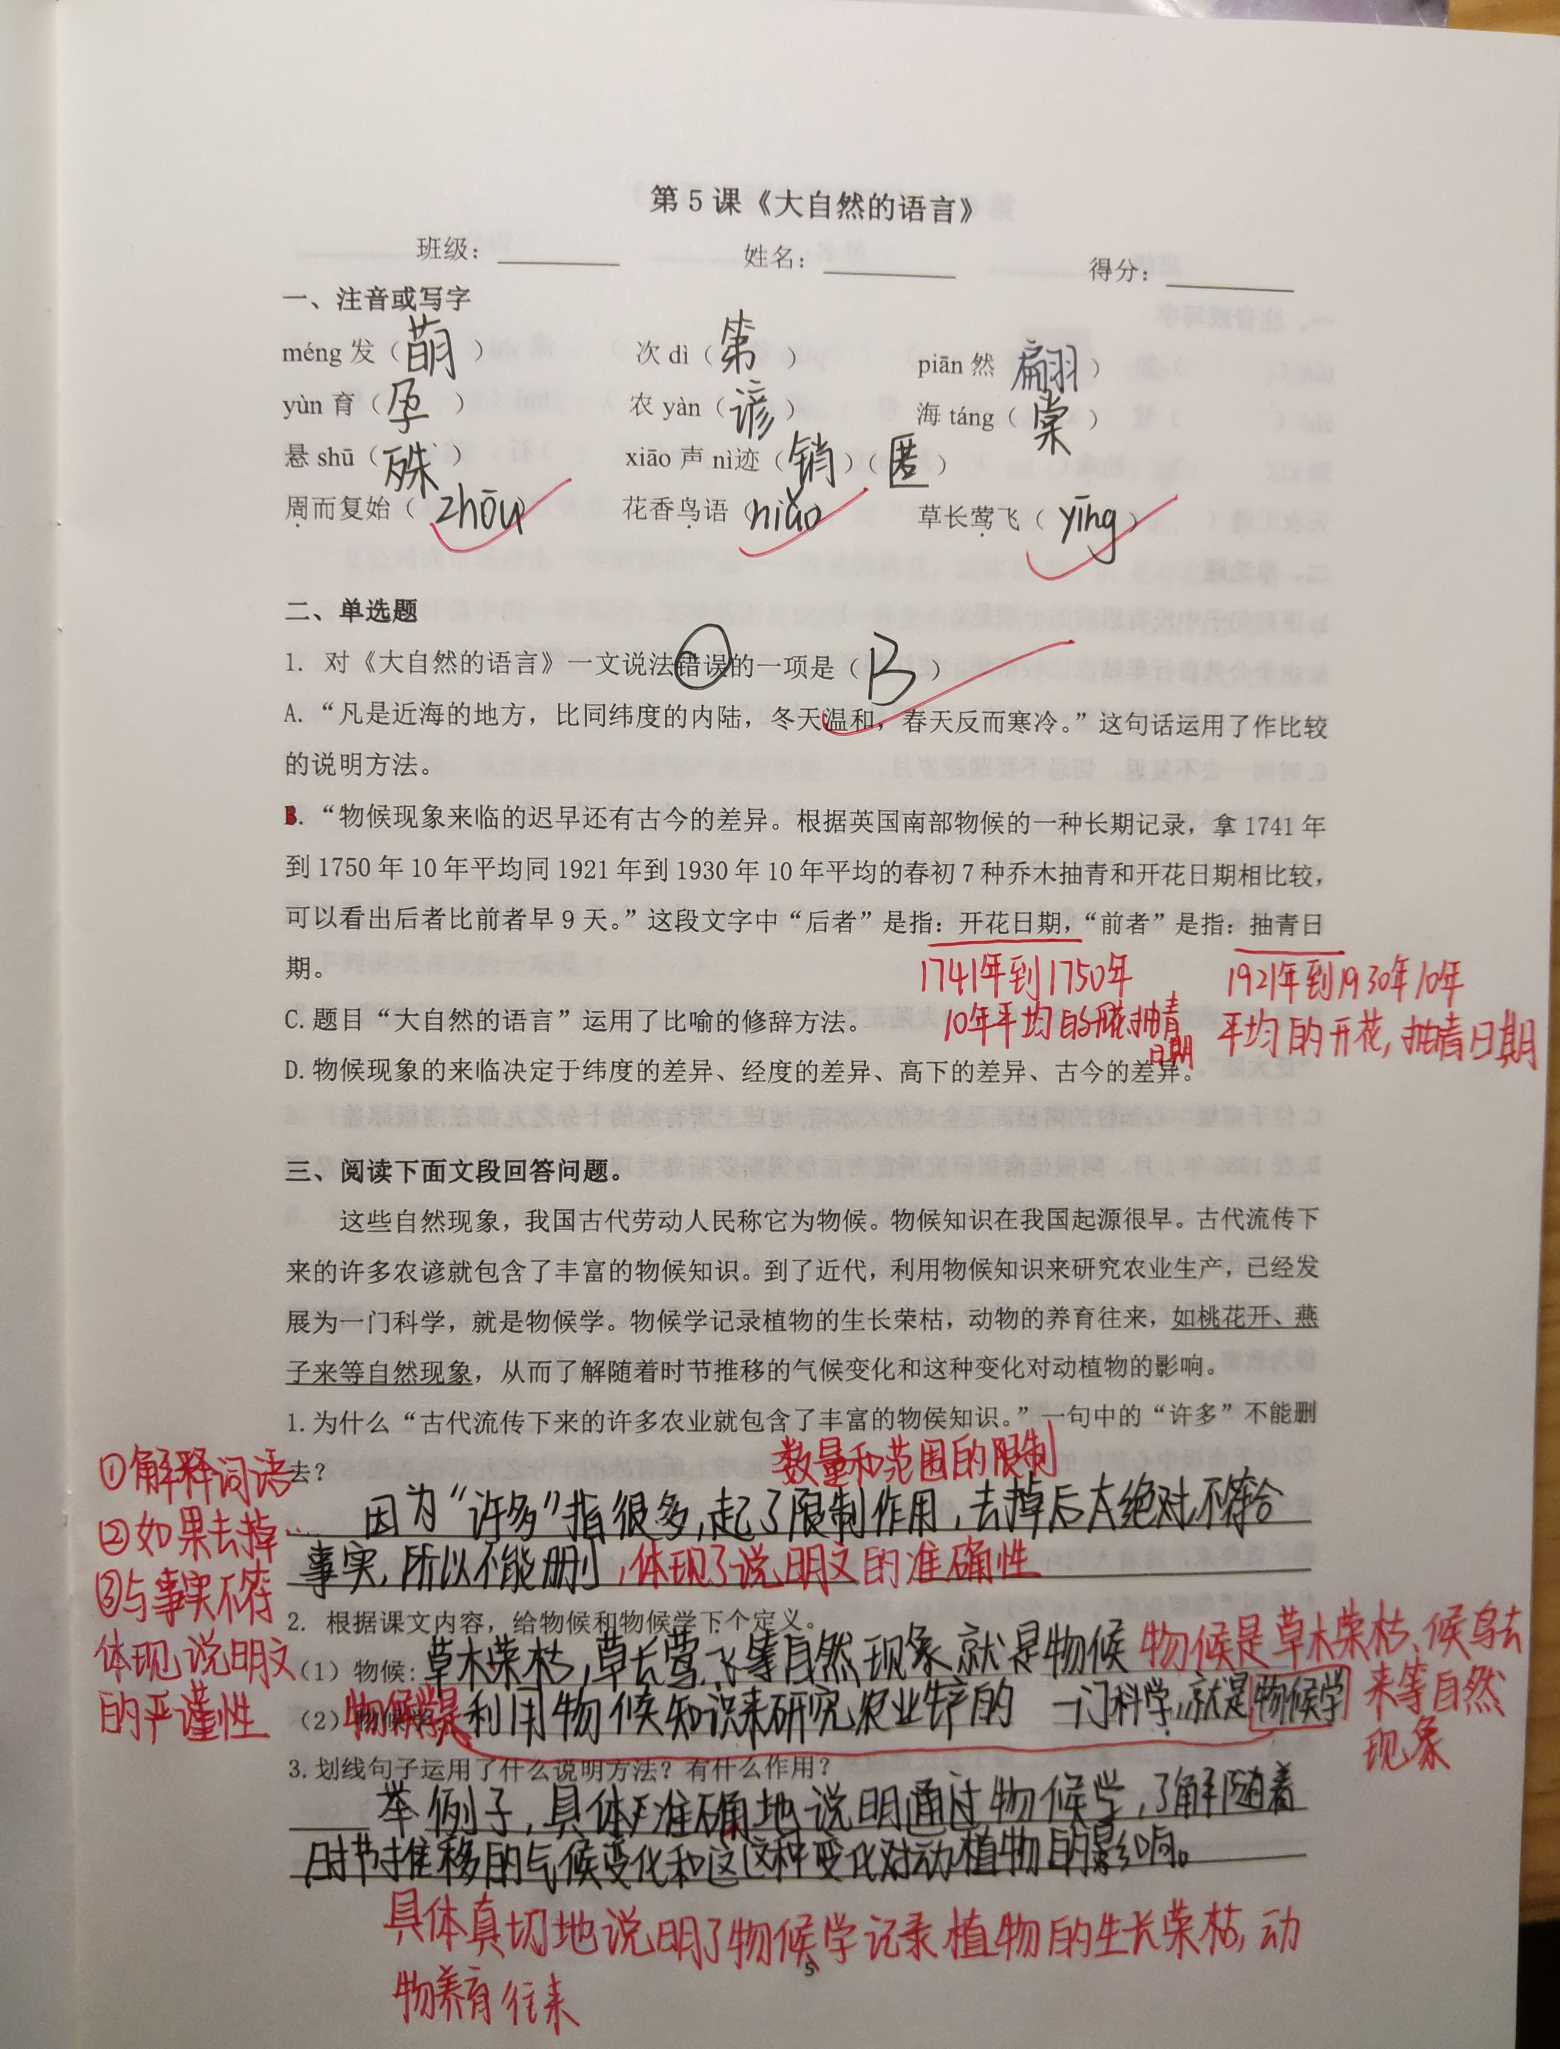 第 5 课《大自然的语言》
班级：________ 姓名：________ 得分：________
一、注音或写字
méng 发（萌） 次 dì（第） piān 然 翩）
yùn 育（孕） 农 yàn（谚） 海 táng（棠）
悬 shū（殊） xiāo 声 nì迹（销）（匿）
周而复始（zhōu） 花香鸟语（niǎo） 草长莺飞（yīng）
二、单选题
1. 对《大自然的语言》一文说法错误的一项是（B）
A.“凡是近海的地方，比同纬度的内陆，冬天温和，春天反而寒冷。”这句话运用了作比较
的说明方法。
B.“物候现象来临的迟早还有古今的差异。根据英国南部物候的一种长期记录，拿 1741 年
到 1750 年 10 年平均同 1921 年到 1930 年 10 年平均的春初 7 种乔木抽青和开花日期相比较，
可以看出后者比前者早 9 天。”这段文字中“后者”是指：开花日期，“前者”是指：抽青日
期。
1741年到1750年 1921年到1930年10年
10年平均的开花,抽青日期 平均的开花,抽青日期
C.题目“大自然的语言”运用了比喻的修辞方法。
D.物候现象的来临决定于纬度的差异、经度的差异、高下的差异、古今的差异。
三、阅读下面文段回答问题。
这些自然现象，我国古代劳动人民称它为物候。物候知识在我国起源很早。古代流传下
来的许多农谚就包含了丰富的物候知识。到了近代，利用物候知识来研究农业生产，已经发
展为一门科学，就是物候学。物候学记录植物的生长荣枯，动物的养育往来，如桃花开、燕
子来等自然现象，从而了解随着时节推移的气候变化和这种变化对动植物的影响。
1.为什么“古代流传下来的许多农业就包含了丰富的物侯知识。”一句中的“许多”不能删
去？
数量和范围的限制
①解释词语
②如果去掉…
③与事实不符
体现说明文
的严谨性
因为“许多”指很多,起了限制作用,去掉后太绝对,不符合
事实,所以不能删,体现了说明文的准确性
2. 根据课文内容，给物候和物候学下个定义。
（1）物候:草木荣枯,草长莺飞等自然现象就是物候 物候是草木荣枯、候鸟去
来等自然
现象
（2）物候学是利用物候知识来研究农业生产的 一门科学,就是物候学
3.划线句子运用了什么说明方法？有什么作用？
举例子,具体准确地说明通过物候学,了解随着
时节推移的气候变化和这这种变化对动植物的影响。
具体真切地说明了物候学记录植物的生长荣枯,动
物养育往来
5